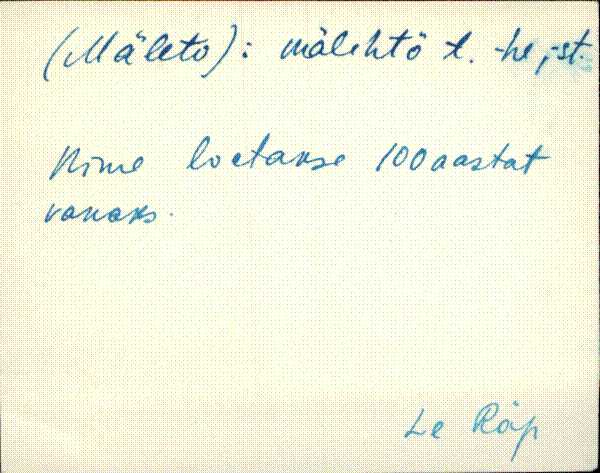 (Mäleto): mälehtö t. -he, -st.
Nime loetakse 100 aastat
vanaks.
Le Räp